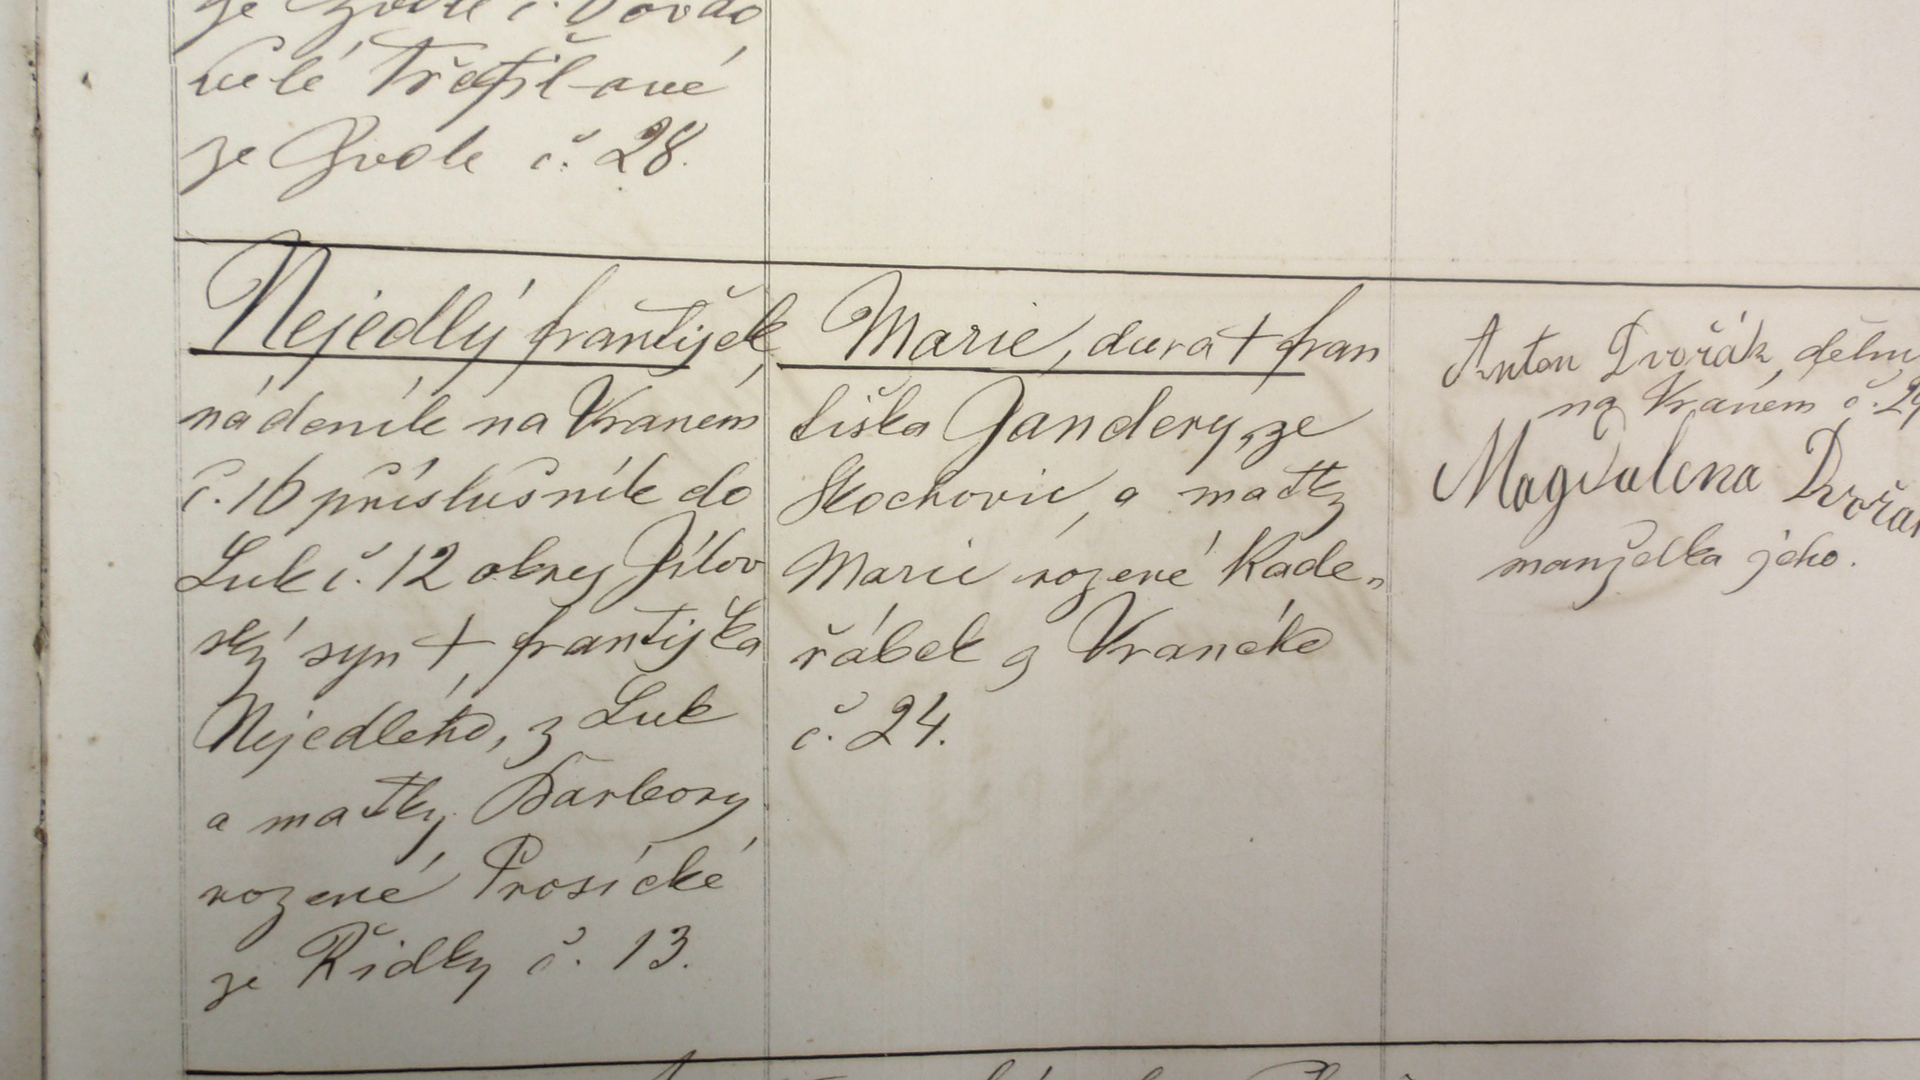 ze Zvole č.
ze Zvole č. 28.
Nejedlý František,
nádeník na Vraném
č. 16 příslušník do
Luk č. 12 okres Jílov
ský syn † Františka
Nejedlého, z Luk
a matky Barbory
rozené Prosické
ze Řidky č. 13.
Marie, dcera † Fran
tiška Gandery, ze
Skochovic, a matky
Marie rozené Kade„
řábek z Vraného
č. 24.
Anton Dvořák, děln
na Vraném č. 29
Magdalena Dvořák
manželka jeho.